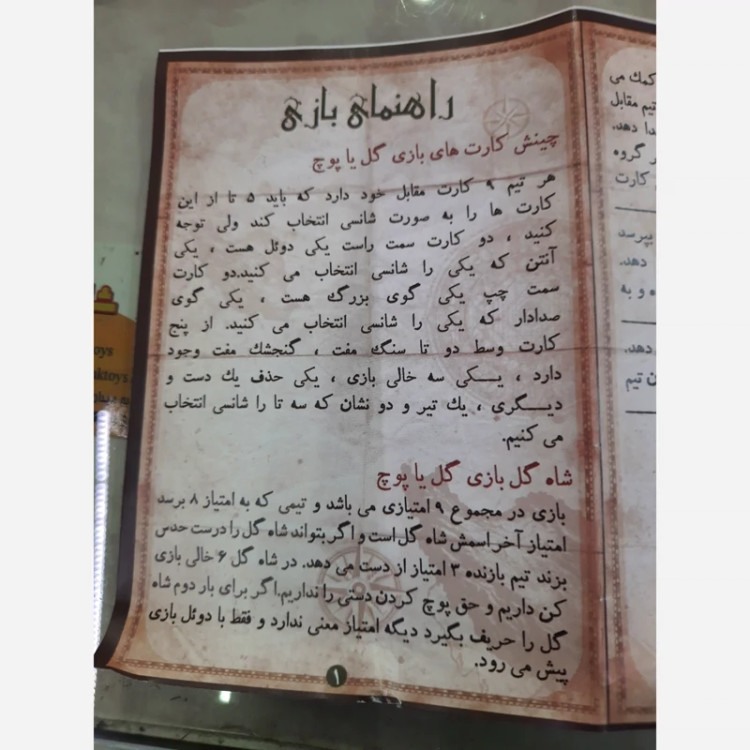 راهنمای بازی
چینش کارت های بازی گل یا پوچ
هر تیم ۹ کارت مقابل خود دارد که باید ۵ تا از این
کارت ها را به صورت شانسی انتخاب کند ولی توجه
کنید ، دو کارت سمت راست یکی دوئل هست ، یکی
آنتن که یکی را شانسی انتخاب می کنید.دو کارت
سمت چپ یکی گوی بزرگ هست ، یکی گوی
صدادار که یکی را شانسی انتخاب می کنید. از پنج
کارت وسط دو تا سنگ مفت ، گنجشک مفت وجود
دارد ، یکی سه خالی بازی ، یکی حذف یک دست و
دیگری ، یک تیر و دو نشان که سه تا را شانسی انتخاب
می کنیم.
شاه گل بازی گل یا پوچ
بازی در مجموع ۹ امتیازی می باشد و تیمی که به امتیاز ۸ برسد
امتیاز آخر اسمش شاه گل است و اگر بتواند شاه گل را درست حدس
بزند تیم بازنده ۳ امتیاز از دست می دهد. در شاه گل ۶ خالی بازی
کن داریم و حق پوچ کردن دستی را نداریم.اگر برای بار دوم شاه
گل را حریف بگیرد دیگه امتیاز معنی ندارد و فقط با دوئل بازی
پیش می رود.
۱
کمک می
تیم مقابل
دا دهد.
ر گروه
کارت
بپرسد
دهد.
ه و به
دهد.
ن تیم
oys
ktoys